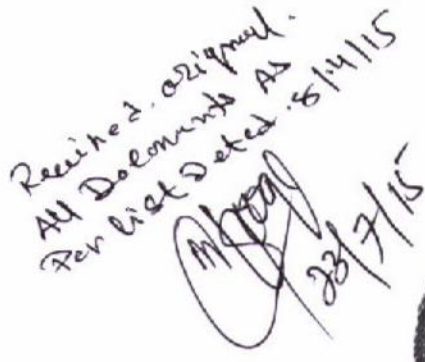 Received. original.
All Documents As
Per list Deted. 8/4/15
23/7/15